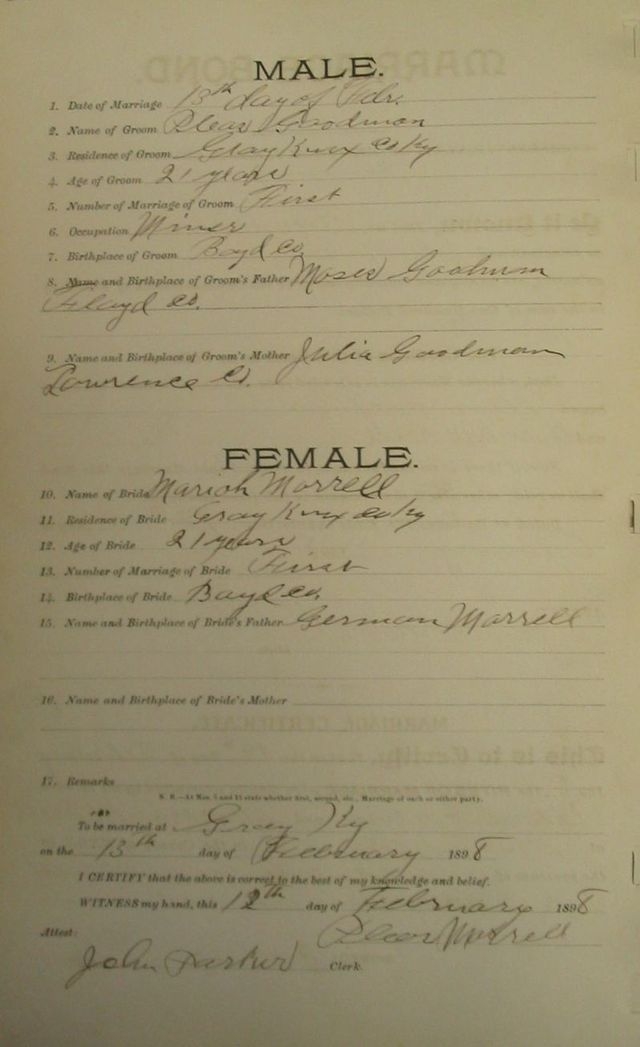 MALE.
1. Date of Marriage 13th day of
2. Name of Groom Goodman
3. Residence of Groom Gray Knox Co Ky
4. Age of Groom 21 years
5. Number of Marriage of Groom First
6. Occupation Miner
7. Birthplace of Groom Boyd Co
8. Name and Birthplace of Groom's Father Moses
Floyd Co.
9. Name and Birthplace of Groom's Mother Julia Goodman
Lawrence Co.
FEMALE.
10. Name of Bride Morrell
11. Residence of Bride Gray Knox Co Ky
12. Age of Bride 21 years
13. Number of Marriage of Bride First
14. Birthplace of Bride Boyd Co
15. Name and Birthplace of Bride's Father German Morrell
16. Name and Birthplace of Bride's Mother
17. Remarks
N. B.—At Nos. 5 and 13 state whether first, second, etc., Marriage of each or either party.
To be married at Gray Ky
on the 13th day of February 1898
I CERTIFY that the above is correct to the best of my knowledge and belief.
WITNESS my hand, this 12th day of February 1898
Morrell
Attest:
John Parker Clerk.